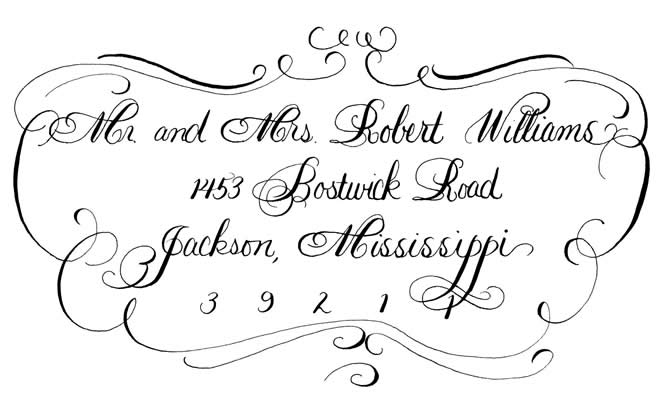 Mr. and Mrs. Robert Williams
1453 Bostwick Road
Jackson, Mississippi
3 9 2 1 1